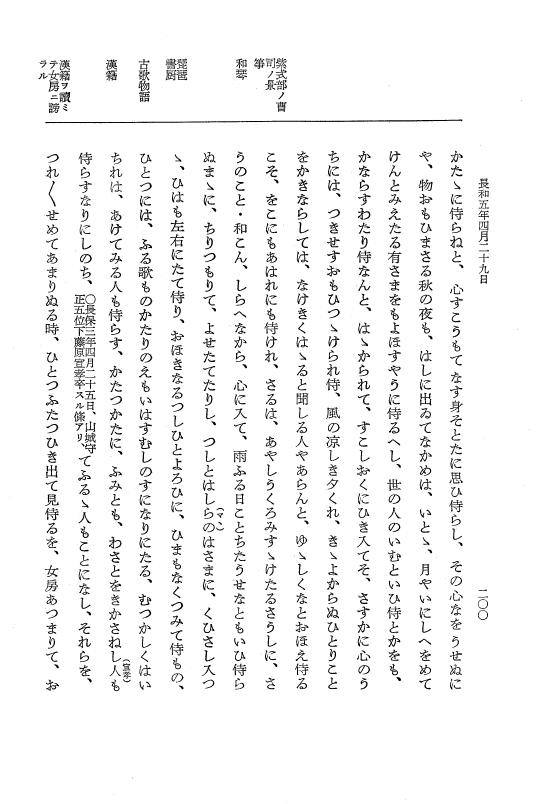 長和五年四月二十九日
二〇〇
かたゝに侍らねと、心すこうもてなす身そとたに思ひ侍らし、その心なをうせぬに
や、物おもひまさる秋の夜も、はしに出ゐてなかめは、いとゝ、月やいにしへをめて
けんとみえたる有さまをもよほすやうに侍るへし、世の人のいむといひ侍とかをも、
かならすわたり侍なんと、はゝかられて、すこしおくにひき入てそ、さすかに心のう
ちには、つきせすおもひつゝけられ侍、風の凉しき夕くれ、きゝよからぬひとりこと
をかきならしては、なけきくはゝると聞しる人やあらんと、ゆゝしくなとおほえ侍る
こそ、をこにもあはれにも侍けれ、さるは、あやしうくろみすゝけたるさうしに、さ
うのこと・和こん、しらへなから、心に入て、雨ふる日ことちたうせなともいひ侍ら
ぬまゝに、ちりつもりて、よせたてたりし、つしとはしらの(マヽ)はさまに、くひさし入つ
ゝ、ひはも左右にたて侍り、おほきなるつしひとよろひに、ひまもなくつみて侍もの、
ひとつには、ふる歌ものかたりのえもいはすむしのすになりにたる、むつかしくはい
ちれは、あけてみる人も侍らす、かたつかたに、ふみとも、わさとをきかさねし人(宣孝)も
侍らすなりにしのち、〇長保三年四月二十五日、山城守正五位下藤原宣孝卒スル條アリ、てふるゝ人もことになし、それらを、
つれ〳〵せめてあまりぬる時、ひとつふたつひき出て見侍るを、女房あつまりて、お
紫式部ノ曹司ノ景
箏
和琴
琵琶
書厨
古歌物語
漢籍
漢籍ヲ讀ミテ女房ニ謗ラル